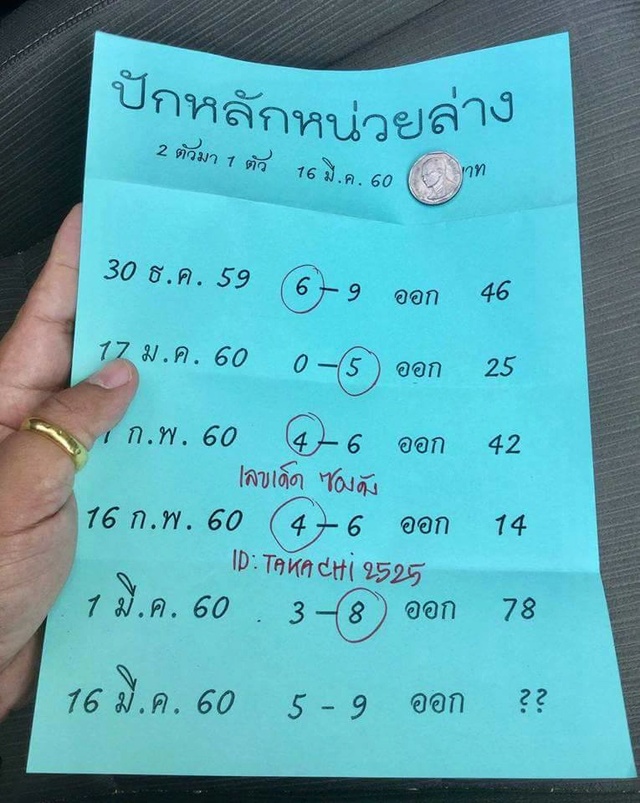 ปักหลักหน่วยล่าง
2 ตัวมา 1 ตัว 16 มี.ค. 60
30 ธ.ค. 59 6 - 9 ออก 46
17 ม.ค. 60 0 - 5 ออก 25
ก.พ. 60 4 - 6 ออก 42
เลขเด็ด ซองดัง
16 ก.พ. 60 4 - 6 ออก 14
ID: TAKACHI 2525
1 มี.ค. 60 3 - 8 ออก 78
16 มี.ค. 60 5 - 9 ออก ??